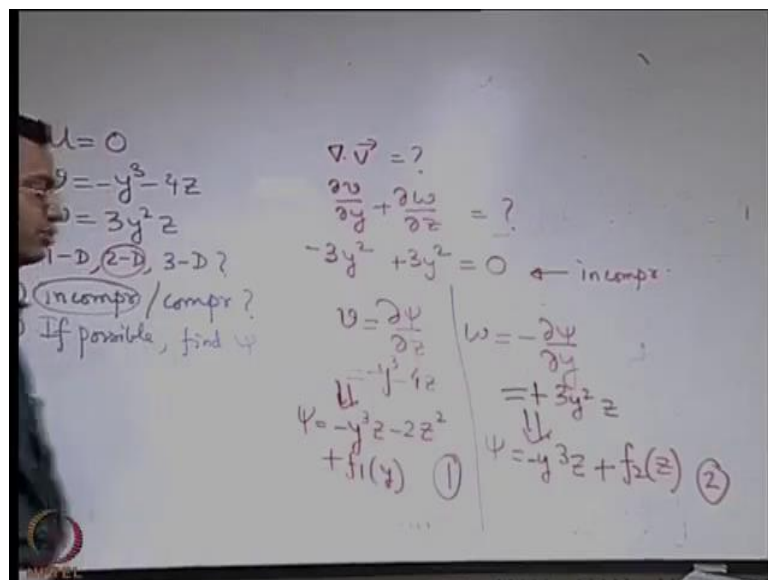 u = 0
v = -y³ - 4z
w = 3y² z
1-D, 2-D, 3-D ?
incompr / compr ?
If possible, find ψ
∇. v⃗ = ?
∂v/∂y + ∂w/∂z = ?
-3y² + 3y² = 0 ← incompr.
v = ∂ψ/∂z
= -y³ - 4z
⇓
ψ = -y³z - 2z²
+ f₁(y) ①
w = -∂ψ/∂y
= + 3y² z
⇓
ψ = -y³z + f₂(z) ②